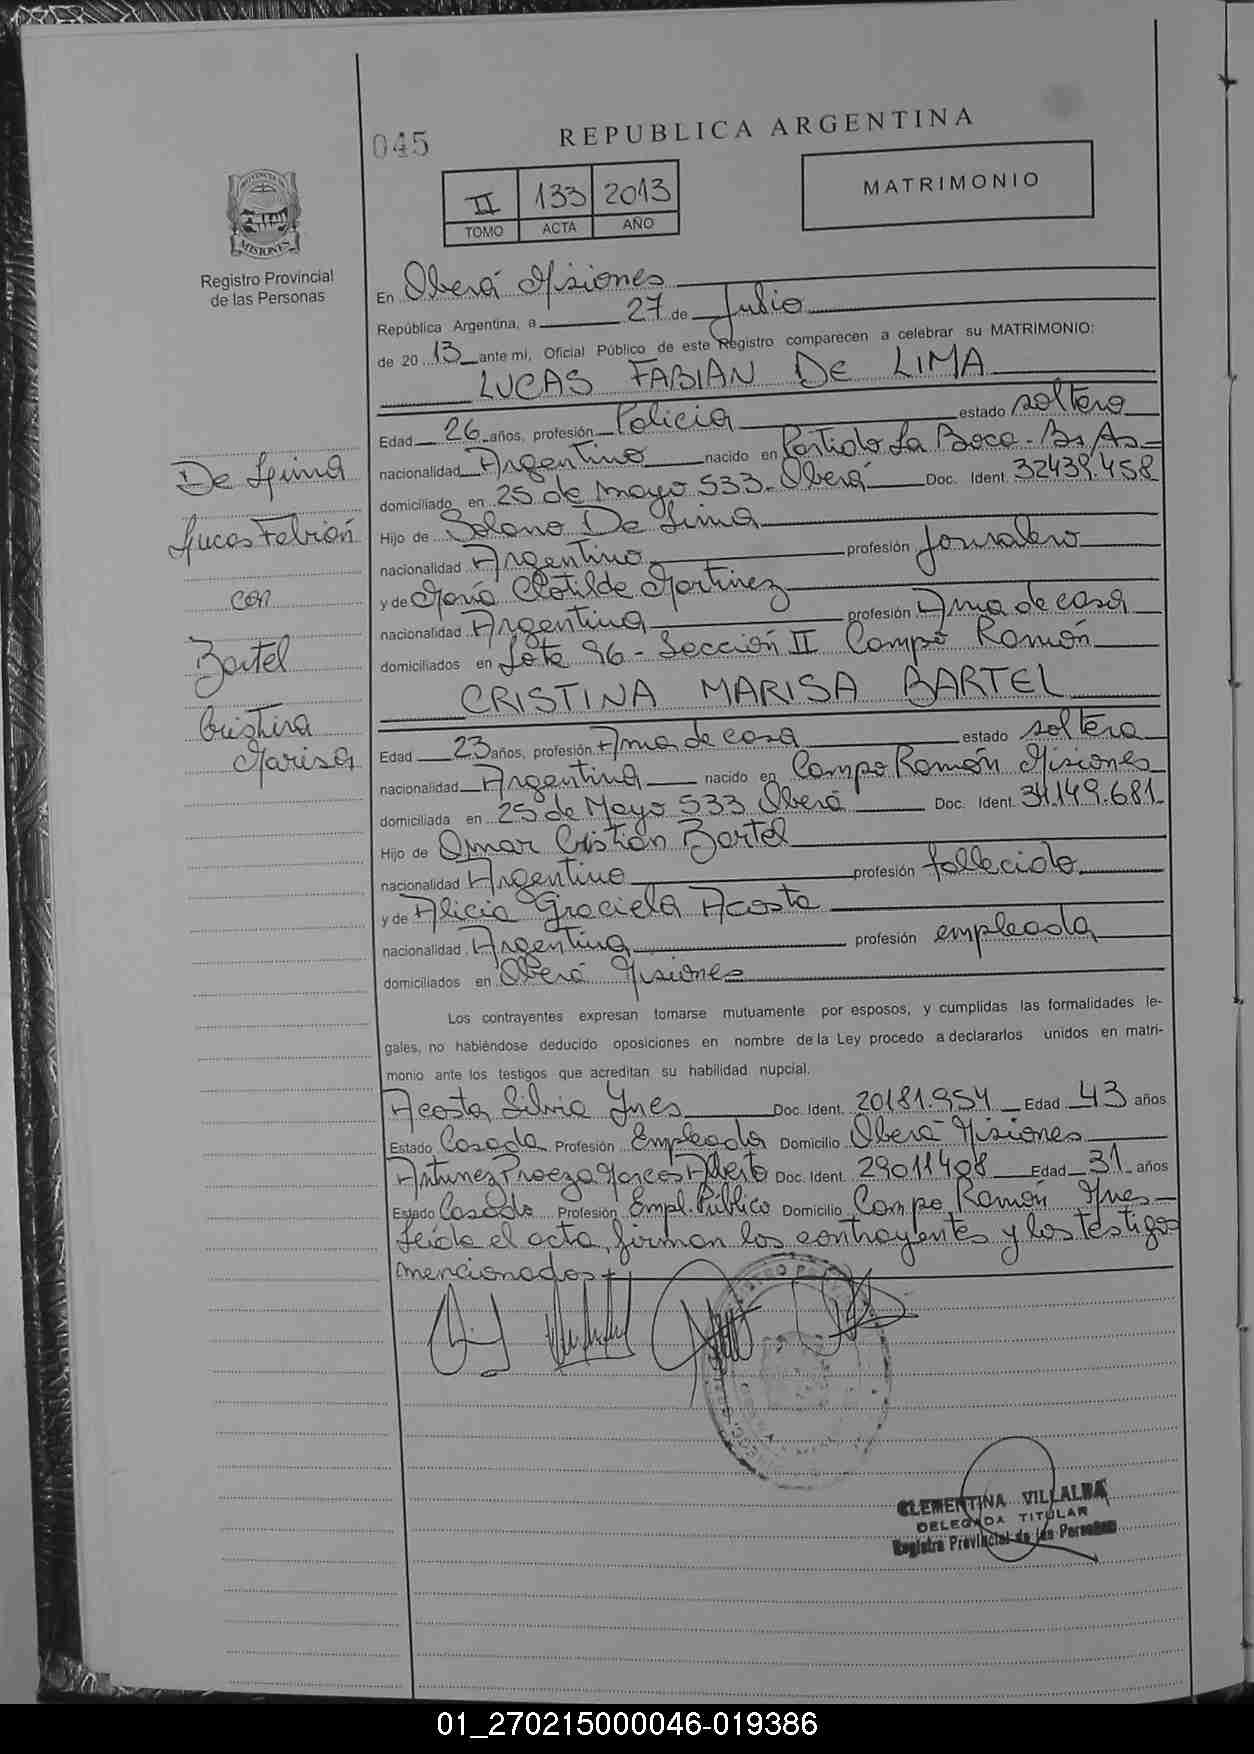 045
REPUBLICA ARGENTINA
II 133 2013
TOMO ACTA AÑO
MATRIMONIO
PROVINCIA DE
MISIONES
Registro Provincial
de las Personas
En Oberá Misiones
República Argentina, a 27 de Julio
de 20 13 ante mi, Oficial Público de este Registro comparecen a celebrar su MATRIMONIO:
LUCAS FABIAN DE LIMA
Edad 26 años, profesión Policia estado soltero
nacionalidad Argentino nacido en Partido La Boca - Bs As
domiciliado en 25 de Mayo 533 - Oberá Doc. Ident. 32439.458
Hijo de Solano De Lima
nacionalidad Argentino profesión Jornalero
y de María Clotilde Martinez
nacionalidad Argentina profesión Ama de casa
domiciliados en Lote 96 - Sección II Campo Ramón
CRISTINA MARISA BARTEL
Edad 23 años, profesión Ama de casa estado soltera
nacionalidad Argentina nacido en Campo Ramón Misiones
domiciliada en 25 de Mayo 533 Oberá Doc. Ident. 34.149.681
Hijo de Omar Cristian Bartel
nacionalidad Argentino profesión fallecido
y de Alicia Graciela Acosta
nacionalidad Argentina profesión empleada
domiciliados en Oberá Misiones
De Lima
Lucas Fabián
con
Bartel
Cristina
Marisa
Los contrayentes expresan tomarse mutuamente por esposos, y cumplidas las formalidades le-
gales, no habiéndose deducido oposiciones en nombre de la Ley procedo a declararlos unidos en matri-
monio ante los testigos que acreditan su habilidad nupcial.
Acosta Silvia Ynes Doc. Ident. 20181.954 Edad 43 años
Estado Casada Profesión Empleada Domicilio Oberá Misiones
Antunez Marcos Alberto Doc. Ident. 29011408 Edad 31 años
Estado Casado Profesión Empl. Público Domicilio Campo Ramón Mnes
Leída el acta, firman los contrayentes y los testigos
mencionados
CLEMENTINA VILLALBA
DELEGADA TITULAR
Registro Provincial de las Personas
01_270215000046-019386